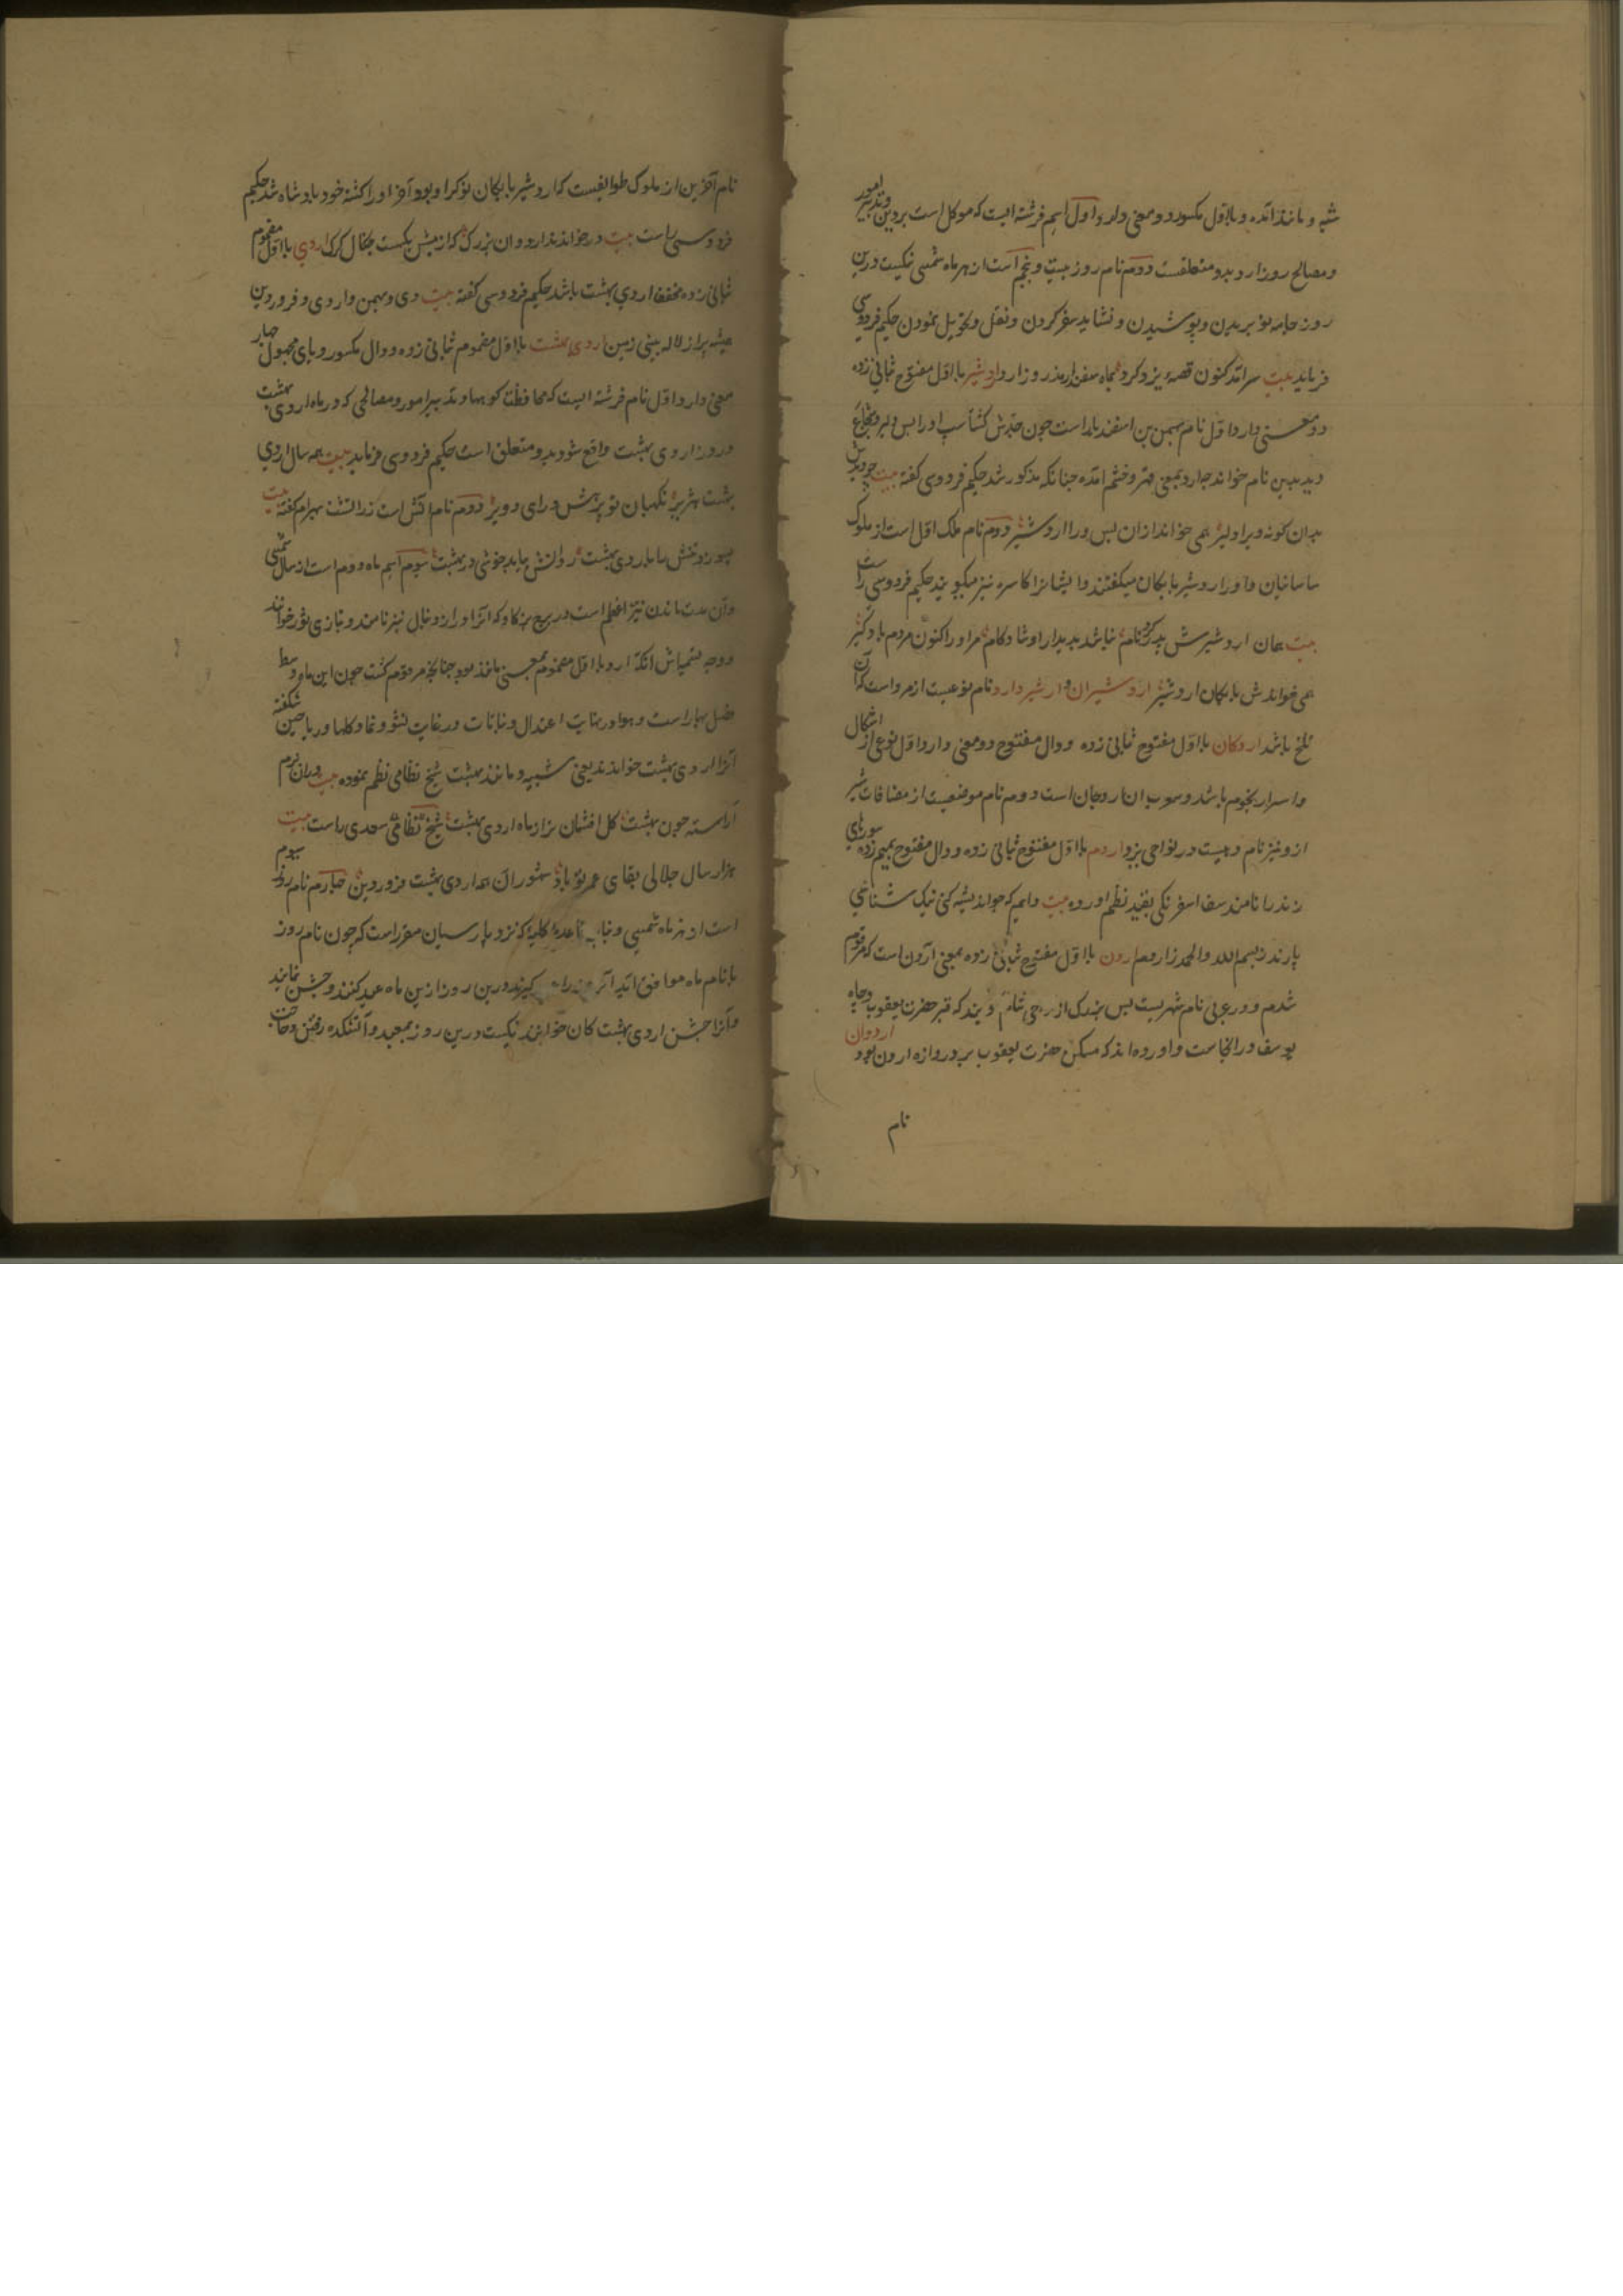 شبه و مانند آمده و بااول مکسور دو معنی دارد اول اسم فرشته ایست که موکل است بر دین و تدبیر امور
و مصالح روز ارد بدو متعلقست دوم نام روز بیست و پنجم است از هر ماه شمسی نیکست درین
روز جامه نو بریدن و پوشیدن و نشاید سفر کردن و نقل و تحویل نمودن حکیم فردوسی
فرماید بیت سر آمد کنون قصه یزدکرد بماه سفندارمذ روز ارد اردشیر بااول مفتوح ثانی زده
دو معنی دارد اول نام بهمن بن اسفندیار است چون جدش کشتاسب او را بس دلیر و شجاع
دید بدین نام خواند چه ارد بمعنی قهر و خشم آمده چنانکه مذکور شد حکیم فردوسی گفته بیت چو دیدش
بدان کونه ویرا دلیر همی خواند از ان پس ورا اردشیر دوم نام ملک اول است از ملوک
ساسانیان و او را اردشیر بابکان میکفتند و ایشانرا کاسره نیز میکویند حکیم فردوسی راست
بیت همان اردشیرش پدر کرد نام نباشد بدیدار او شادکام مر او را کنون مردم یادکیر
همی خواندش بابکان اردشیر اردشیران و اردشیردارو نام نوعیست از مرو است که آن
تلخ باشد اردکان بااول مفتوح ثانی زده و دال مفتوح دو معنی دارد اول نوعی از اشکال
و اسرار نجوم باشد و معرب ان اردجان است دوم نام موضعیست از مضافات شیر
از و نیز نام دهیست در نواحی یزد اردم بااول مفتوح ثانی زده و دال مفتوح بمیم زده سورهای
زند را نامند سفاسفرنکی بقید نظم آورده بیت دانم که چو اندیشه کنی نیک شناسی
پازند ز بسم الله و الحمد ز اردم اردن بااول مفتوح ثانی زده بمعنی آردن است که مرقوم
شدم و در عربی نام شهریست بس بزرک از نواحی شام کویند که قبر حضرت یعقوب و چاه
یوسف در انجاست و اورده اند که مسکن حضرت یعقوب بر دروازه اردن بود اردوان
نام
نام آخرین از ملوک طوایفست که اردشیر بابکان نوکر او بود آخر او را کشته خود پادشاه شد حکیم
فردوسی راست بیت ور خوانندند اردوان بزرک که از میش بکسست چنکال کرک اردی بااول مضموم
ثانی زده مخفف اردی بهشت باشد حکیم فردوسی کفته بیت دی و بهمن و اردی و فروردین
همیشه پر از لاله بینی زمین اردی بهشت بااول مضموم ثانی زده و دال مکسور و یای مجهول چهار
معنی دارد اول نام فرشته ایست که محافظت کوهها و تدبیر امور و مصالحی که در ماه اردی بهشت
و روز اردی بهشت واقع شود بدو متعلق است حکیم فردوسی فرماید بیت همه سال اردی
بهشت هژیر نکهبان تو بر هش و رای و ویر دوم نام آتش است زراتشت بهرام کفته بیت
اردی بهشت روانش بیابد خوشی در بهشت سوم اسم ماه دوم است از سال شمسی
و آن مدت ماندن نیر اعظم است در برج کاو که آنرا ورزو نیز نامند و بتازی ثور خوانند
و وجه تسمیاش آنکه ارد بااول مضموم بمعنی مانند بود چنانچه مرقوم کشت چون این ماه وسط
فصل بهار است و هوا در نهایت اعتدال و نباتات در غایت نشو و نما و کلها و ریاحین شکفته
آنرا اردی بهشت خوانند یعنی شبیه و مانند بهشت شیخ نظامی نظم نموده بیت بزم
آراسته چون بهشت کل افشان تر از ماه اردی بهشت شیخ سعدی راست بیت
هزار سال جلالی بقای عمر تو باد شهور آن همه اردی بهشت و فروردین چهارم نام روز سیوم
است از هر ماه شمسی و بنا بر قاعده کلیه که نزد پارسیان مقرر است که چون نام روز
با نام ماه موافق آید آنروز را عید کیرند درین روز ازین ماه عید کنند و جشن نمایند
و آنرا جشن اردی بهشت کان خوانند نیکست درین روز بمعبد و آتشکده رفتن و حاجت